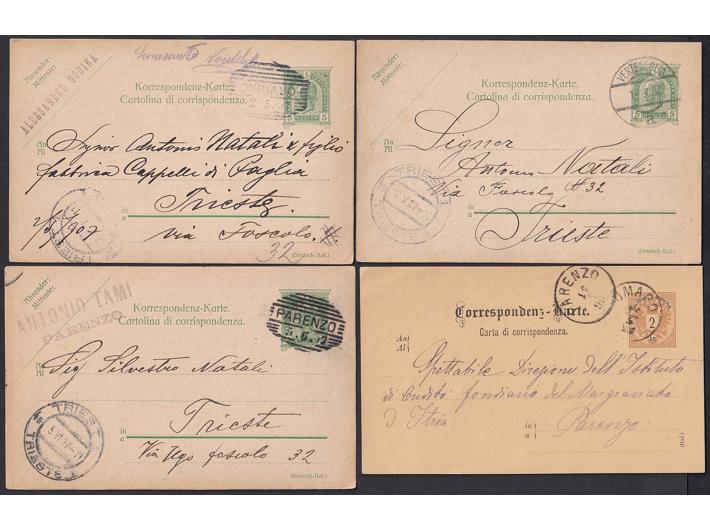 Absender:
Mittente:
ALESSANDRO GODINA
Korrespondenz-Karte.
Cartolina di corrispondenza.
DIGNANO
5 HELLER 5
An
Al
Signor Antonio Natali & figlio
fabbrica Cappelli di Paglia
in
a
Trieste
2/5/907
via Foscolo
32
(Deutsch-Ital.)
Absender:
Mittente:
Korrespondenz-Karte.
Cartolina di corrispondenza.
5 HELLER 5
An
Al
Signor
Antonio Natali
Via Foscolo # 32
TRIEST 1
in
a
Trieste
(Deutsch-Ital.)
Absender:
Mittente:
ANTONIO TAMI
PARENZO
Korrespondenz-Karte.
Cartolina di corrispondenza.
PARENZO
5.6.07
An
Al
Sig Silvestro Natali
TRIEST
TRIESTE
in
a
Trieste
Via Ugo foscolo 32
(Deutsch-Ital.)
PARENZO
UMAGO
2
Correspondenz-Karte.
Carta di corrispondenza.
An
Al
Spettabile Direzione dell'Istituto
di Credito fondiario del Margraviato
d'Istria
in
a
Parenzo
(Ital.)